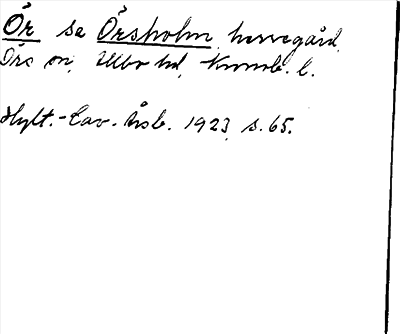 Ör se Örsholm, herregård,
Örs sn, Ullbo hd, Kronob. l.
Hylt.-Cav. Årsb. 1923, s. 65.